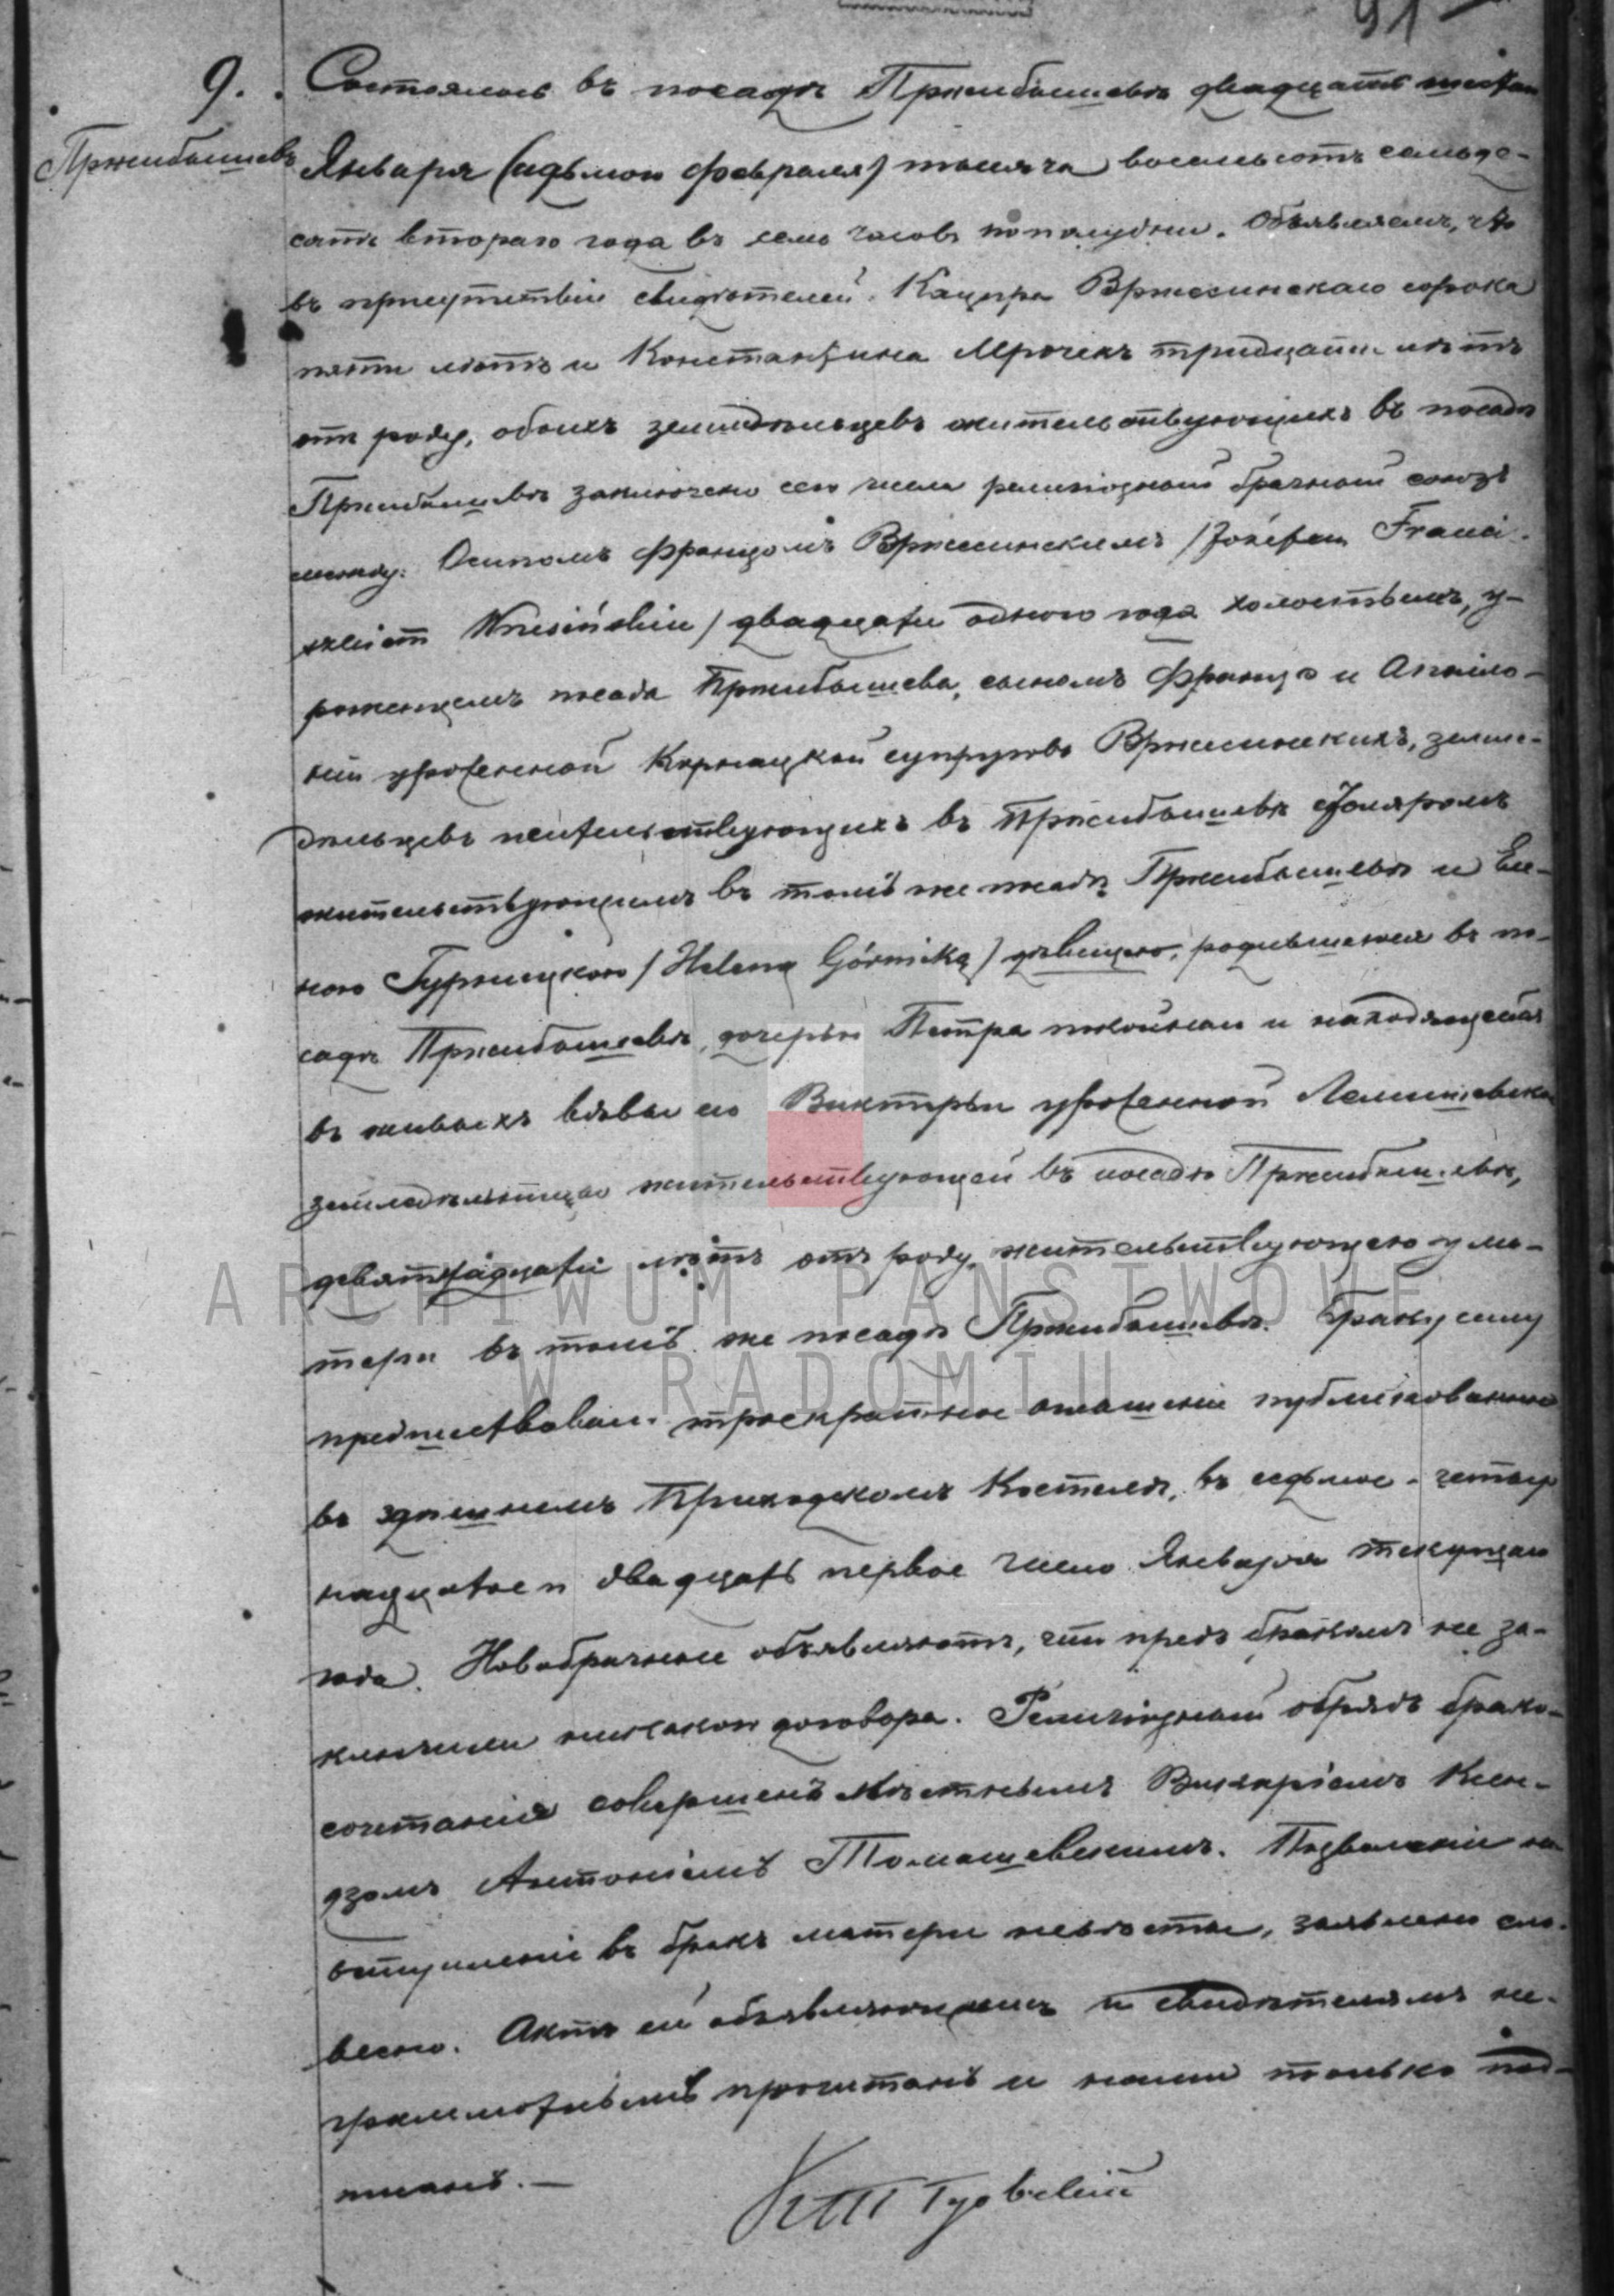 91
9. Состоялось въ посадѣ Пржибышевѣ двадцать шестаго
Пржибышевъ Января (седьмого февраля) тысяча восемьсотъ семьде-
сятъ втораго года въ семь часовъ пополудни. Объявляемъ, что
въ присутствіи свидѣтелей Кацпра Вржесинскаго сорока
пяти лѣтъ и Константина Мрочекъ тридцати лѣтъ
отъ роду, обоихъ земледѣльцевъ жительствующихъ въ посадѣ
Пржибышевѣ заключено сего числа религіозный брачный союзъ
между: Осипомъ Францомъ Вржесинскимъ /Józefem Franci-
szkiem Wrzesińskim/ двадцати одного года холостымъ, у-
роженцемъ посада Пржибышева, сыномъ Франца и Аполло-
ніи урожденной Корнацкой супруговъ Вржесинскихъ, земле-
дѣльцевъ жительствующихъ въ Пржибышевѣ
жительствующимъ въ томъ же посадѣ Пржибышевѣ и Еле-
ною Гурницкою /Heleną Górnicką/ дѣвицею, родившеюся въ по-
садѣ Пржибышевѣ, дочерью Петра покойнаго и находящейся
въ живыхъ вдовы его Викторіи урожденной
земледѣлицы жительствующей въ посадѣ Пржибышевѣ,
девятнадцати лѣтъ отъ роду, жительствующею у ма-
тери въ томъ же посадѣ Пржибышевѣ. Браку сему
предшествовали троекратные оглашенія публикованные
въ здѣшнемъ Приходскомъ Костелѣ, въ седьмое, четыр-
надцатое и двадцать первое число Января текущаго
года. Новобрачные объявляютъ, что предъ бракомъ не за-
ключили никакого договора. Религіозный обрядъ брако-
сочетанія совершенъ мѣстнымъ Викаріемъ Ксен-
дзомъ Антоніемъ Томашевскимъ. Позволеніе на
вступленіе въ бракъ матери невѣсты, заявлено сло-
весно. Актъ сей объявляющимъ и свидѣтелямъ не-
грамотнымъ прочитанъ и нами только под-
писанъ.—
ARCHIWUM PAŃSTWOWE
W RADOMIU